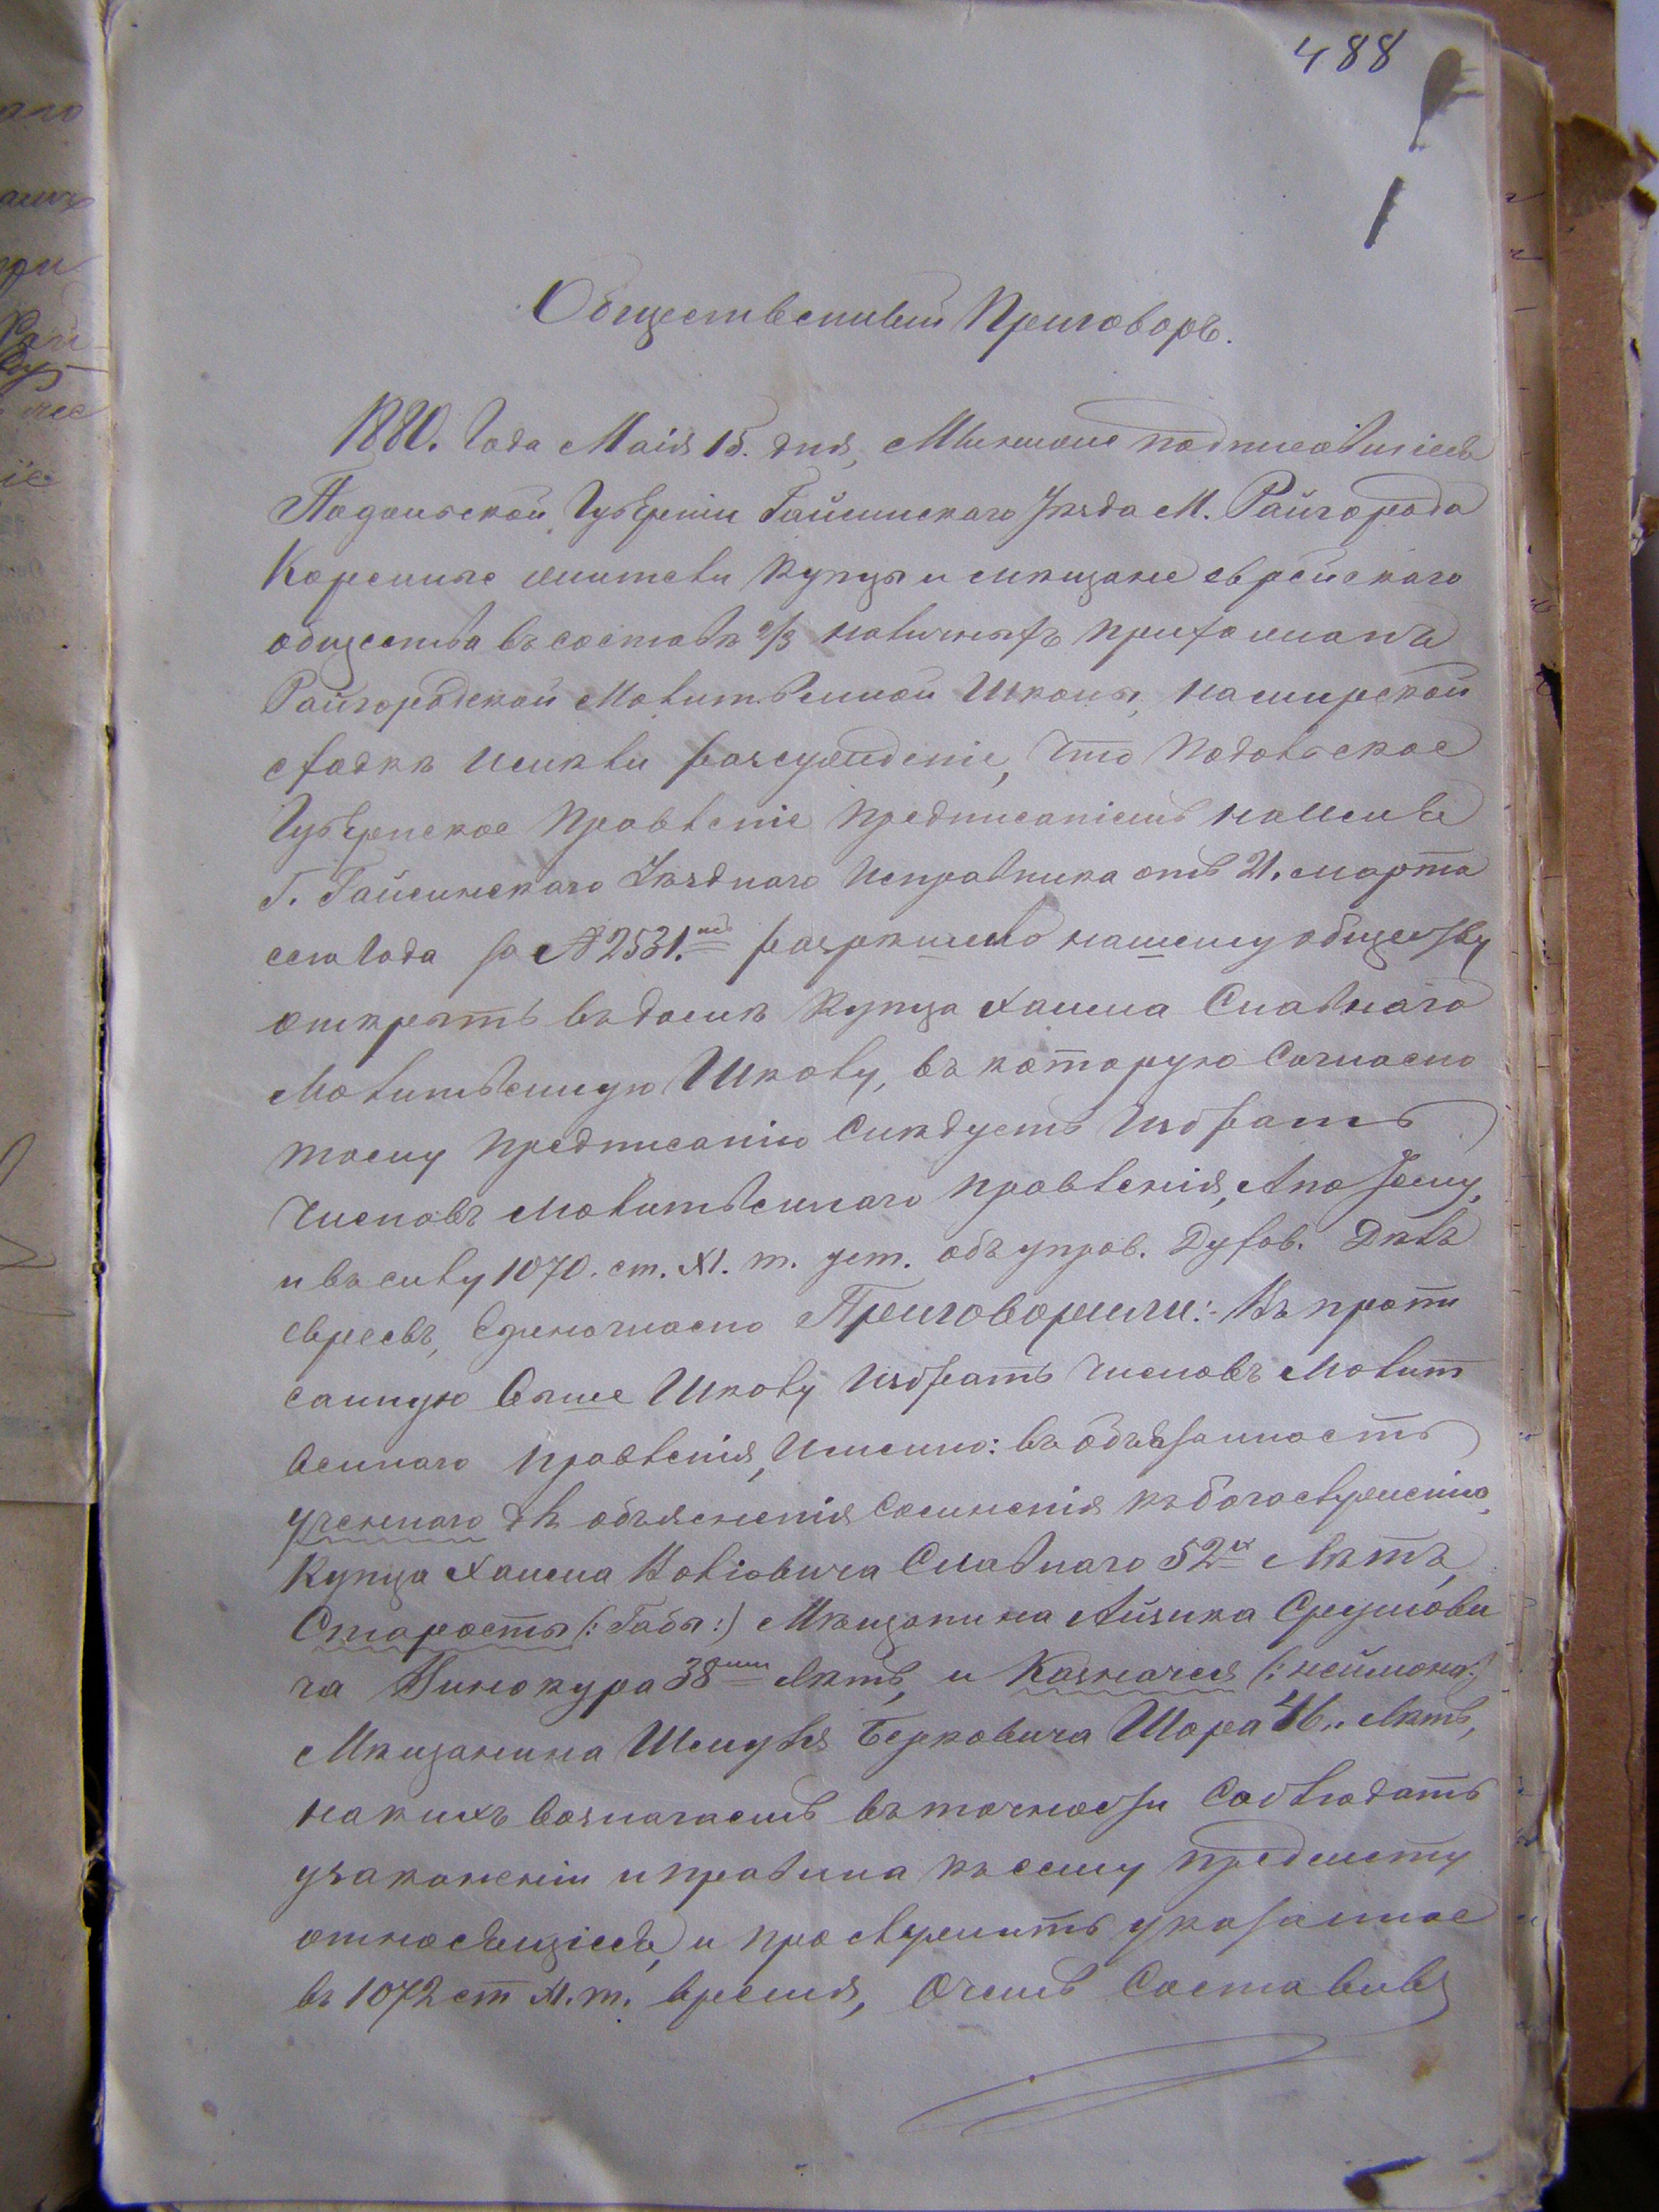 488
Общественный Приговоръ.
1880. Года Маія 15. дня, Мы ниже подписавшіеся
Подольской Губерніи Гайсинскаго Уѣзда М. Райгорода
Коренные жители Купцы и мѣщане еврейскаго
общества въ составѣ 2/3 наличныхъ прихожанъ
Райгородской Молитвенной Школы, на мирской
сходкѣ имѣли разсужденіе, что Подольское
Губернское Правленіе предписаніемъ на имя
Г. Гайсинскаго Уѣзднаго Исправника отъ 21. марта
сего Года за № 2531. разрѣшило нашему обществу
открыть въ домѣ Купца Хаима Славнаго
Молитвенную Школу, въ которую Согласно
тому предписанію Слѣдуетъ Избрать
Членовъ Молитвеннаго правленія, А по сему,
и въ силу 1070. ст. XI. т. уст. объ управ. Духов. Дѣлъ
евреевъ, Единогласно Приговорили:- Въ пропи
санную выше Школу Избрать Членовъ Молит
веннаго правленія, Именно: въ обязанность
Ученнаго для объясненія Сомненія къ богослуженію
Купца Хаима Волковича Славнаго 52 Лѣтъ,
Старосты (: Габы :) Мѣщанина Айзика Сруловви
ча Винокура 38 Лѣтъ, и Казначея (: неймона:)
Мѣщанина Шмуля Берковича Шора 46„ Лѣтъ,
на какихъ возлагаемъ въ точности Соблюдать
узаконеніи и правила къ сему предмету
относящіеся, и прослужить указанное
въ 1072 ст XI. т. время, О чемъ Составивъ